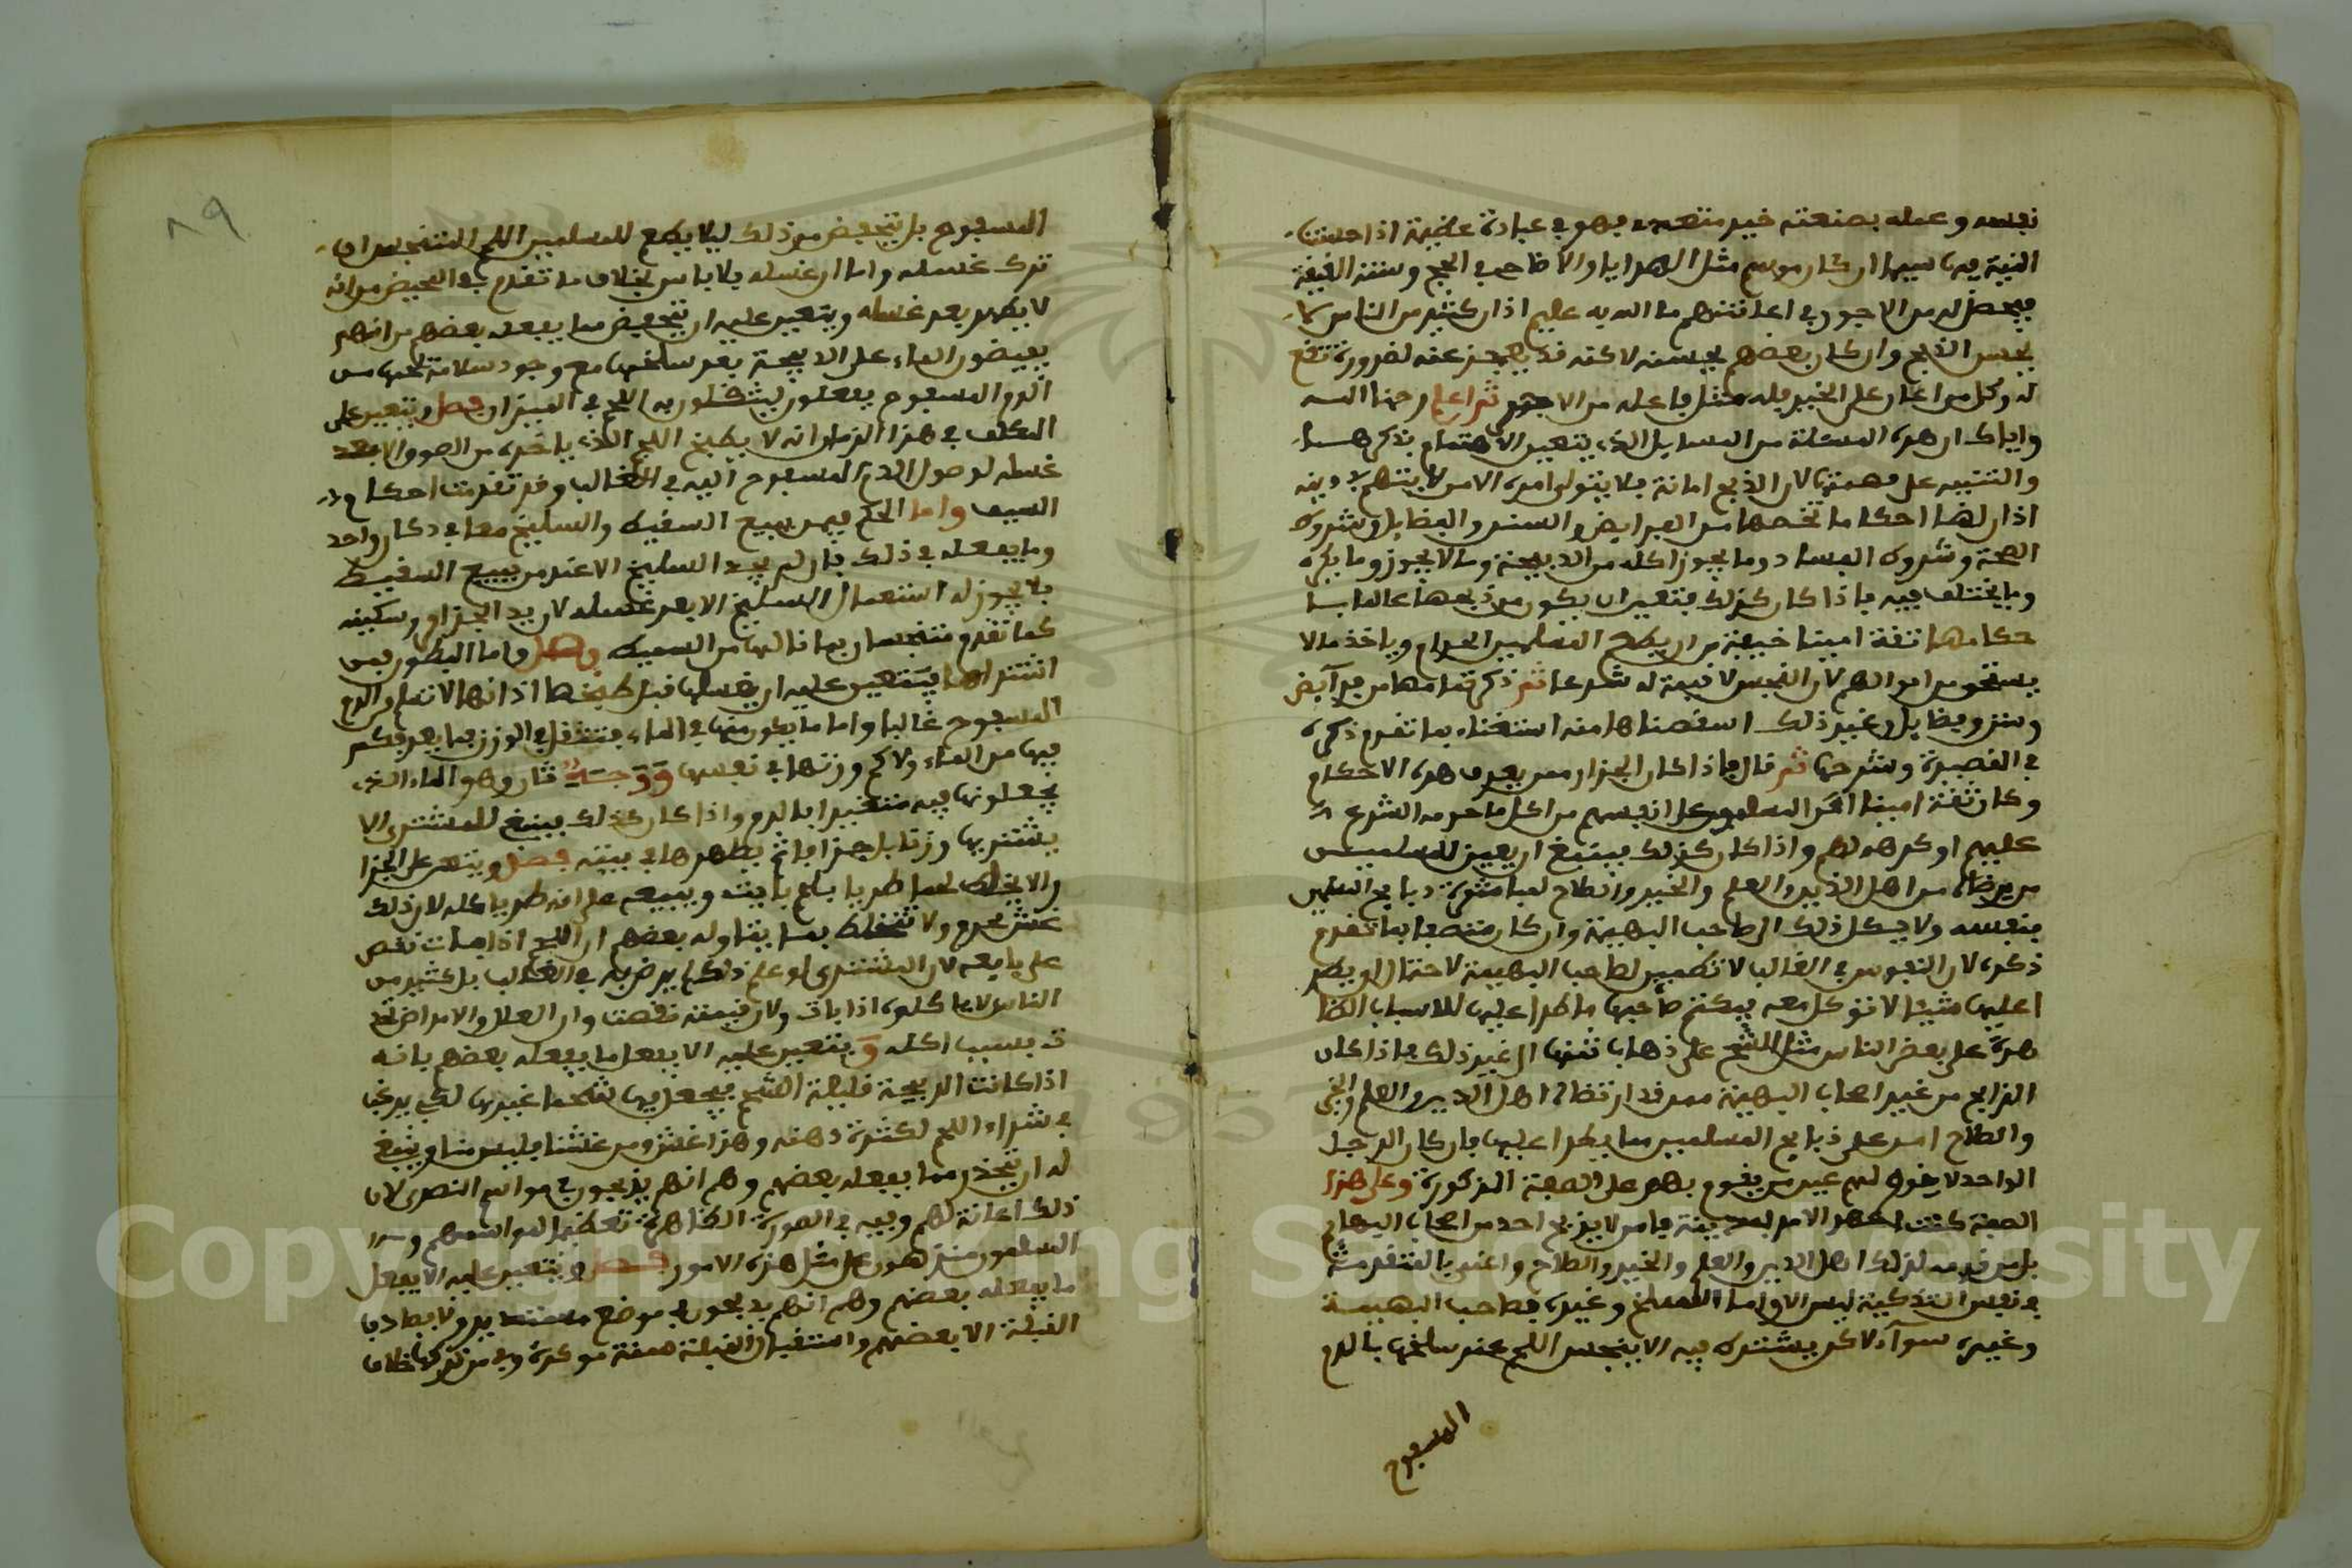 نفسه وعمله بصنعته خير متعد فهو في عبادة عظيمة اذا حسنت
النية فيها سيما ان كان موسم مثل الهدايا والاضاحي في الحج وسنة العقيقة
فيحصل له من الاجور في اعانتهم ما الله به عليم اذ ان كثيرا من الناس لا
يحسن الذبح وان كان بعضهم يحسنه لاكنه قد يعجز عنه لضرورة تقع
له وكل من اعان على الخير فله مثل فاعله من الاجر ثم اعلم رحمنا الله
واياك ان هذه المسئلة من المسايل الذي يتعين الاهتمام بذكرها
والتنبيه على مهمتها لان الذبح امانة فلا يتولى امره الا من لا يتهم في دينه
اذ ان لها احكاما تخصها من الفرايض والسنن والفضايل وشروط
الصحة وشروط الفساد وما يجوز اكله من الذبيحة وما لا يجوز وما يكره
وما يختلف فيه فاذا كان كذلك فيتعين ان يكون من ذبحها عالما با
حكامها ثقة امينا خيفة من ان يطعم المسلمين الحرام وياخذ ما لا
يستحق من اموالهم لان النجس لا قيمة له شرعا ثم ذكر احكامها من فرايض
وسنن وفضايل وغير ذلك اسقطناها منه استغناء بما تقدم ذكره
في القصيدة وشرحها ثم قال فاذا كان الجزار ممن يعرف هذه الاحكام
وكان ثقة امينا امن المسلمون على انفسهم من اكل ما حرمه الشرع
عليهم او كرهه لهم واذا كان كذلك فينبغي ان يعين للمسلمين
من يرضاه من اهل الدين والعلم والخير والصلاح لمباشرة ذبايح المسلمين
بنفسه ولا يكل ذلك الى صاحب البهيمة وان كان متصفا بما تقدم
ذكره لان النفوس في الغالب لا تطمين لصاحب البهيمة لاحتمال ان يطر
ا عليها شيئا لا توكل معه فيكتم صاحبها ما طرا عليها للاسباب الظا
هرة على بعض الناس مثل الشح على ذهاب ثمنها الى غير ذلك فاذا كان
الذابح من غير اصحاب البهيمة ممن قد ارتضاه اهل الدين والعلم والخير
والصلاح امن على ذبايح المسلمين مما يطرا عليها فان كان الرجل
الواحد لا يقوم لهم عين من يقوم بهم على الصفة المذكورة وعلى هذا
الصفة كان الامر بمدينة فاس لا يذبح احد من اصحاب البهايم
بل من قدمه لذلك اهل الدين والعلم والخير والصلاح واعني بالتقدمة
في نفس التذكية ليس الا واما السلخ وغيره فصاحب البهيمة
وغيره سوآء لاكن يشترط فيه الا ينجس اللحم عند سلخها بالدم
المسفوح
٨٩
المسفوح بل يتحفظ من ذلك ليلا يطعم للمسلمين اللحم المتنجس ان
ترك غسله واما ان غسله فلا باس بخلاف ما تقدم في المحيض من انه
لا يطهر بعد غسله ويتعين عليه ان يتحفظ مما يفعله بعضهم من انهم
يفيضون الماء على الذبيحة بعد سلخها مع وجود سلامتها من
الدم المسفوح يفعلون ليثقلون به اللحم في الميزان فصل ويتعين على
المكلف في هذا الزمان انه لا يطبخ اللحم الذي ياخذه من السوق الا بعد
غسله لوصول الدم المسفوح اليه في الغالب وقد تقدمت احكام
السميط واما الحكم فيمن يبيع السميط والسليخ معا في دكان واحد
وما يفعله في ذلك فان لم يجد السليخ الا عند من يبيع السميط
فلا يجوز له استعمال السليخ الا بعد غسله لان يد الجزار وسكينه
كما تقدم متنجسان بما نالها من السميط فصل واما البطون فمن
اشتراها يتعين عليه ان يغسلها قبل طبخها اذ انها لا تسلم من الدم
المسفوح غالبا واما ما يكون منها في الماء فتثقل في الوزن بما بعد بحكم
فيها من الماء ولا كم وزنها في نفسها ووجه ثان وهو الماء الذي
يجعلونها فيه متغيرا بالدم واذا كان كذلك فينبغي للمشتري الا
يشتريها وزنا بل جزافا ثم يطهرها في بيته فصل ويتعين على الجزار
الا يخلط لحما طريا بلحم بايت ويبيعه على انه طري كله لان ذلك
غش محرم ولا تغتلط بما يتاوله بعضهم ان اللحم اذا بات نقص
على بايعه لان المشتري لو علم ذلك لم يرض به في الغالب بل كثير من
الناس لا ياكلونه اذا بات ولان قيمته نقصت وان العلل والامراض تحد
ث بسبب اكله ويتعين عليه الا يفعل ما يفعله بعضهم فانه
اذا كانت الذبيحة قليلة الشحم فيجعل فيها شحما غيرها لكي يرغب
في شراء اللحم لكثرة دهنه وهذا غش ومن غشنا فليس منا وينبغي
له ان يتحذر مما يفعله بعضهم وهم انهم يذبحون في مواسم النصرى لان
ذلك اعانة لهم وفيه في الصورة الظاهرة تعظيما لمواسمهم
المسلمون منزهون على مثل هذه الامور فصل ويتعين عليه الا يفعل
ما يفعله بعضهم وهم انهم يذبحون في موضع مستدير ولا يصادف
القبلة الا بعضهم واستقبال القبلة سنة موكدة وفي من تركها خلاف